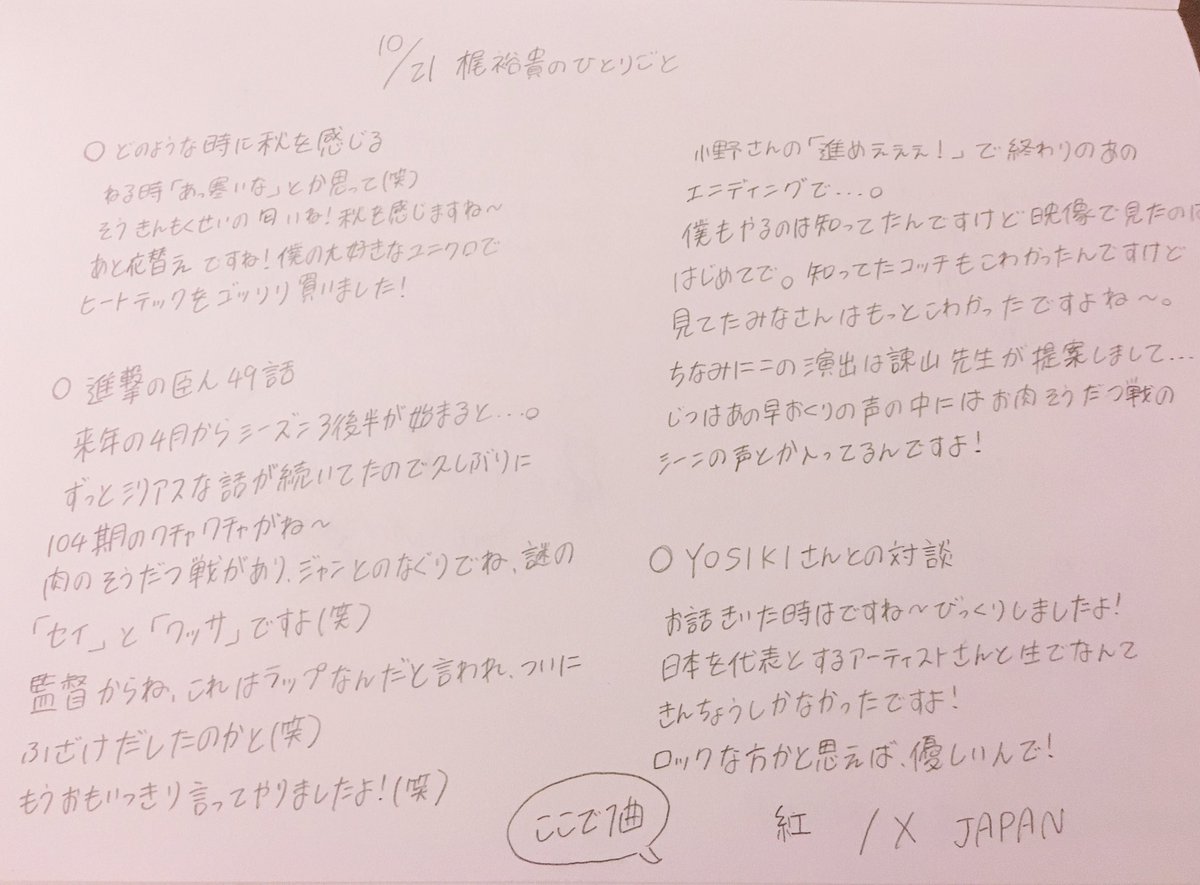 10/21 梶裕貴のひとりごと
○ どのような時に秋を感じる
ねる時「あっ寒いな」とか思って(笑)
そうきんもくせいの匂いね!秋を感じますね〜
あと衣替えですね!僕の大好きなユニクロで
ヒートテックをゴッソリ買いました!
○ 進撃の巨人 49話
来年の4月からシーズン3後半が始まると...。
ずっとシリアスな話が続いてたので久しぶりに
104期のワチャワチャがね〜
肉のそうだつ戦があり、ジャンとのなぐりでね、謎の
「セイ」と「ワッサ」ですよ(笑)
監督からね、これはラップなんだと言われ、ついに
ふざけだしたのかと(笑)
もうおもいっきり言ってやりましたよ!(笑)
小野さんの「進めぇぇぇ!」で終わりのあの
エンディングで...。
僕もやるのは知ってたんですけど映像で見たのは
はじめてで。知ってたコッチもこわかったんですけど
見てたみなさんはもっとこわかったですよね〜。
ちなみにこの演出は諫山先生が提案しまして...
じつはあの早おくりの声の中にはお肉そうだつ戦の
シーンの声とか入ってるんですよ!
○ YOSIKIさんとの対談
お話きいた時はですね〜びっくりしましたよ!
日本を代表とするアーティストさんと生でなんて
きんちょうしかなかったですよ!
ロックな方かと思えば、優しいんで!
ここで1曲
紅 / X JAPAN